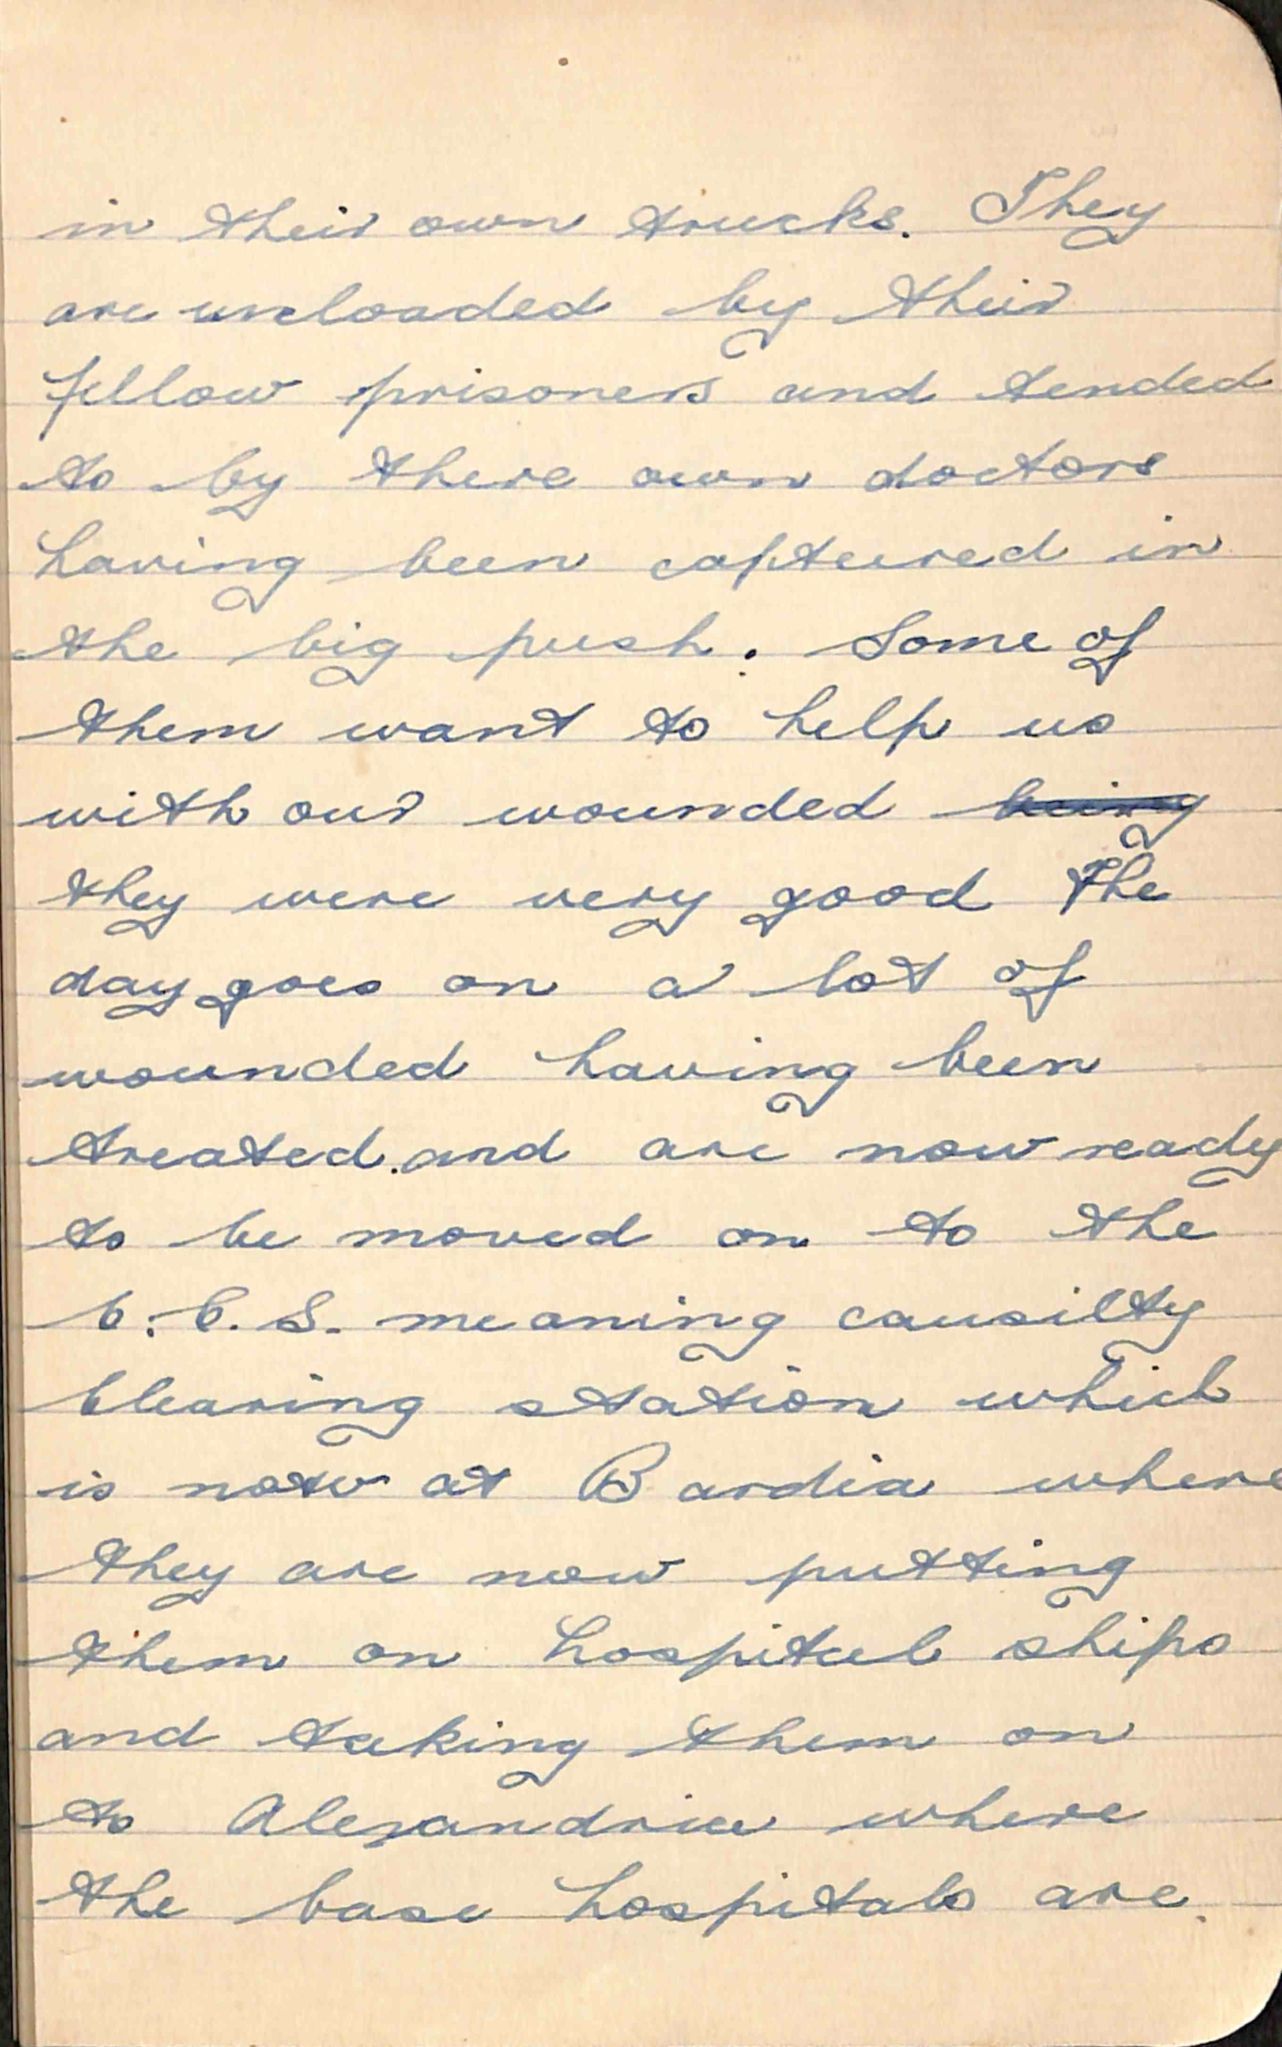 in their own trucks. They
are unloaded by their
fellow prisoners and tended
to by there own doctors
having been captured in
the big push. Some of
them want to help us
with our wounded being
they were very good The
day goes on a lot of
wounded having been
treated.and are now ready
to be moved on to the
C.C.S. meaning causilty
Clearing station which
is now at Bardia where
they are now putting
them on hospital ships
and taking them on
to Alexandria where
the base hospitals are.